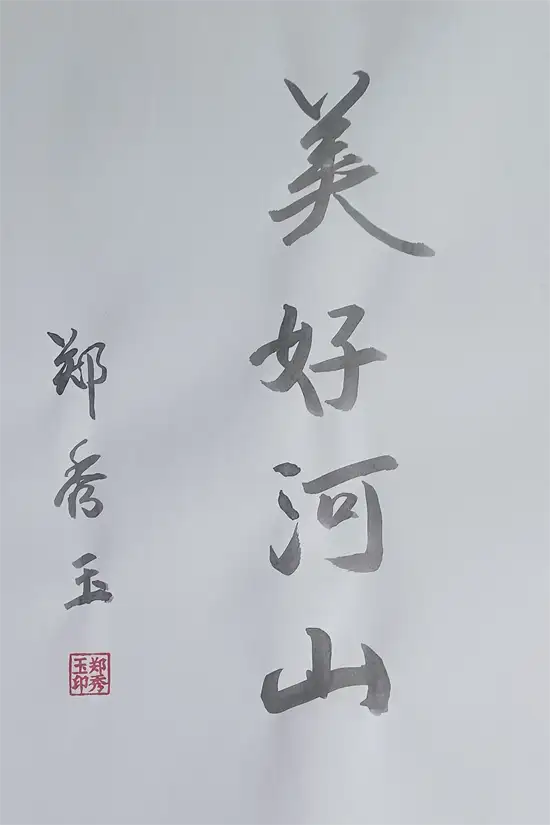 美好河山
郑秀玉
郑秀玉印